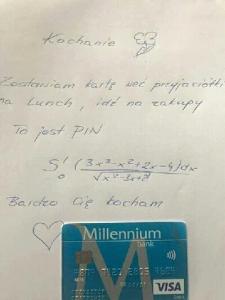 Kochanie
Zostawiam kartę weź przyjaciółki
na Lunch, idź na zakupy
To jest PIN
S¹₀ (3x³-x²+2x-4)dx
√x²-3x+2
Bardzo Cię kocham
Millennium
bank
VISA